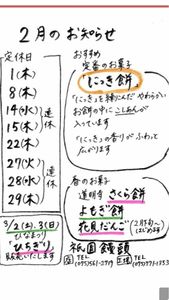 2月のお知らせ
定休日
1(木)
8(木)
14(水)
15(木)
連休
22(木)
27(火)
28(水)
29(木)
連休
3/2(土)、3(日)
ひなまつり
ひちぎり
販売いたします
おすすめ
定番のお菓子
「にっき餅」
「にっき」を練りこんだ やわらかい
お餅の中に こしあんが
入っています
「にっき」の香りが ふわっと
広がります
春のお菓子
道明寺 さくら餅
よもぎ餅
花見だんご
(2月下旬〜
はじめます)
祇園饅頭
TEL
TEL